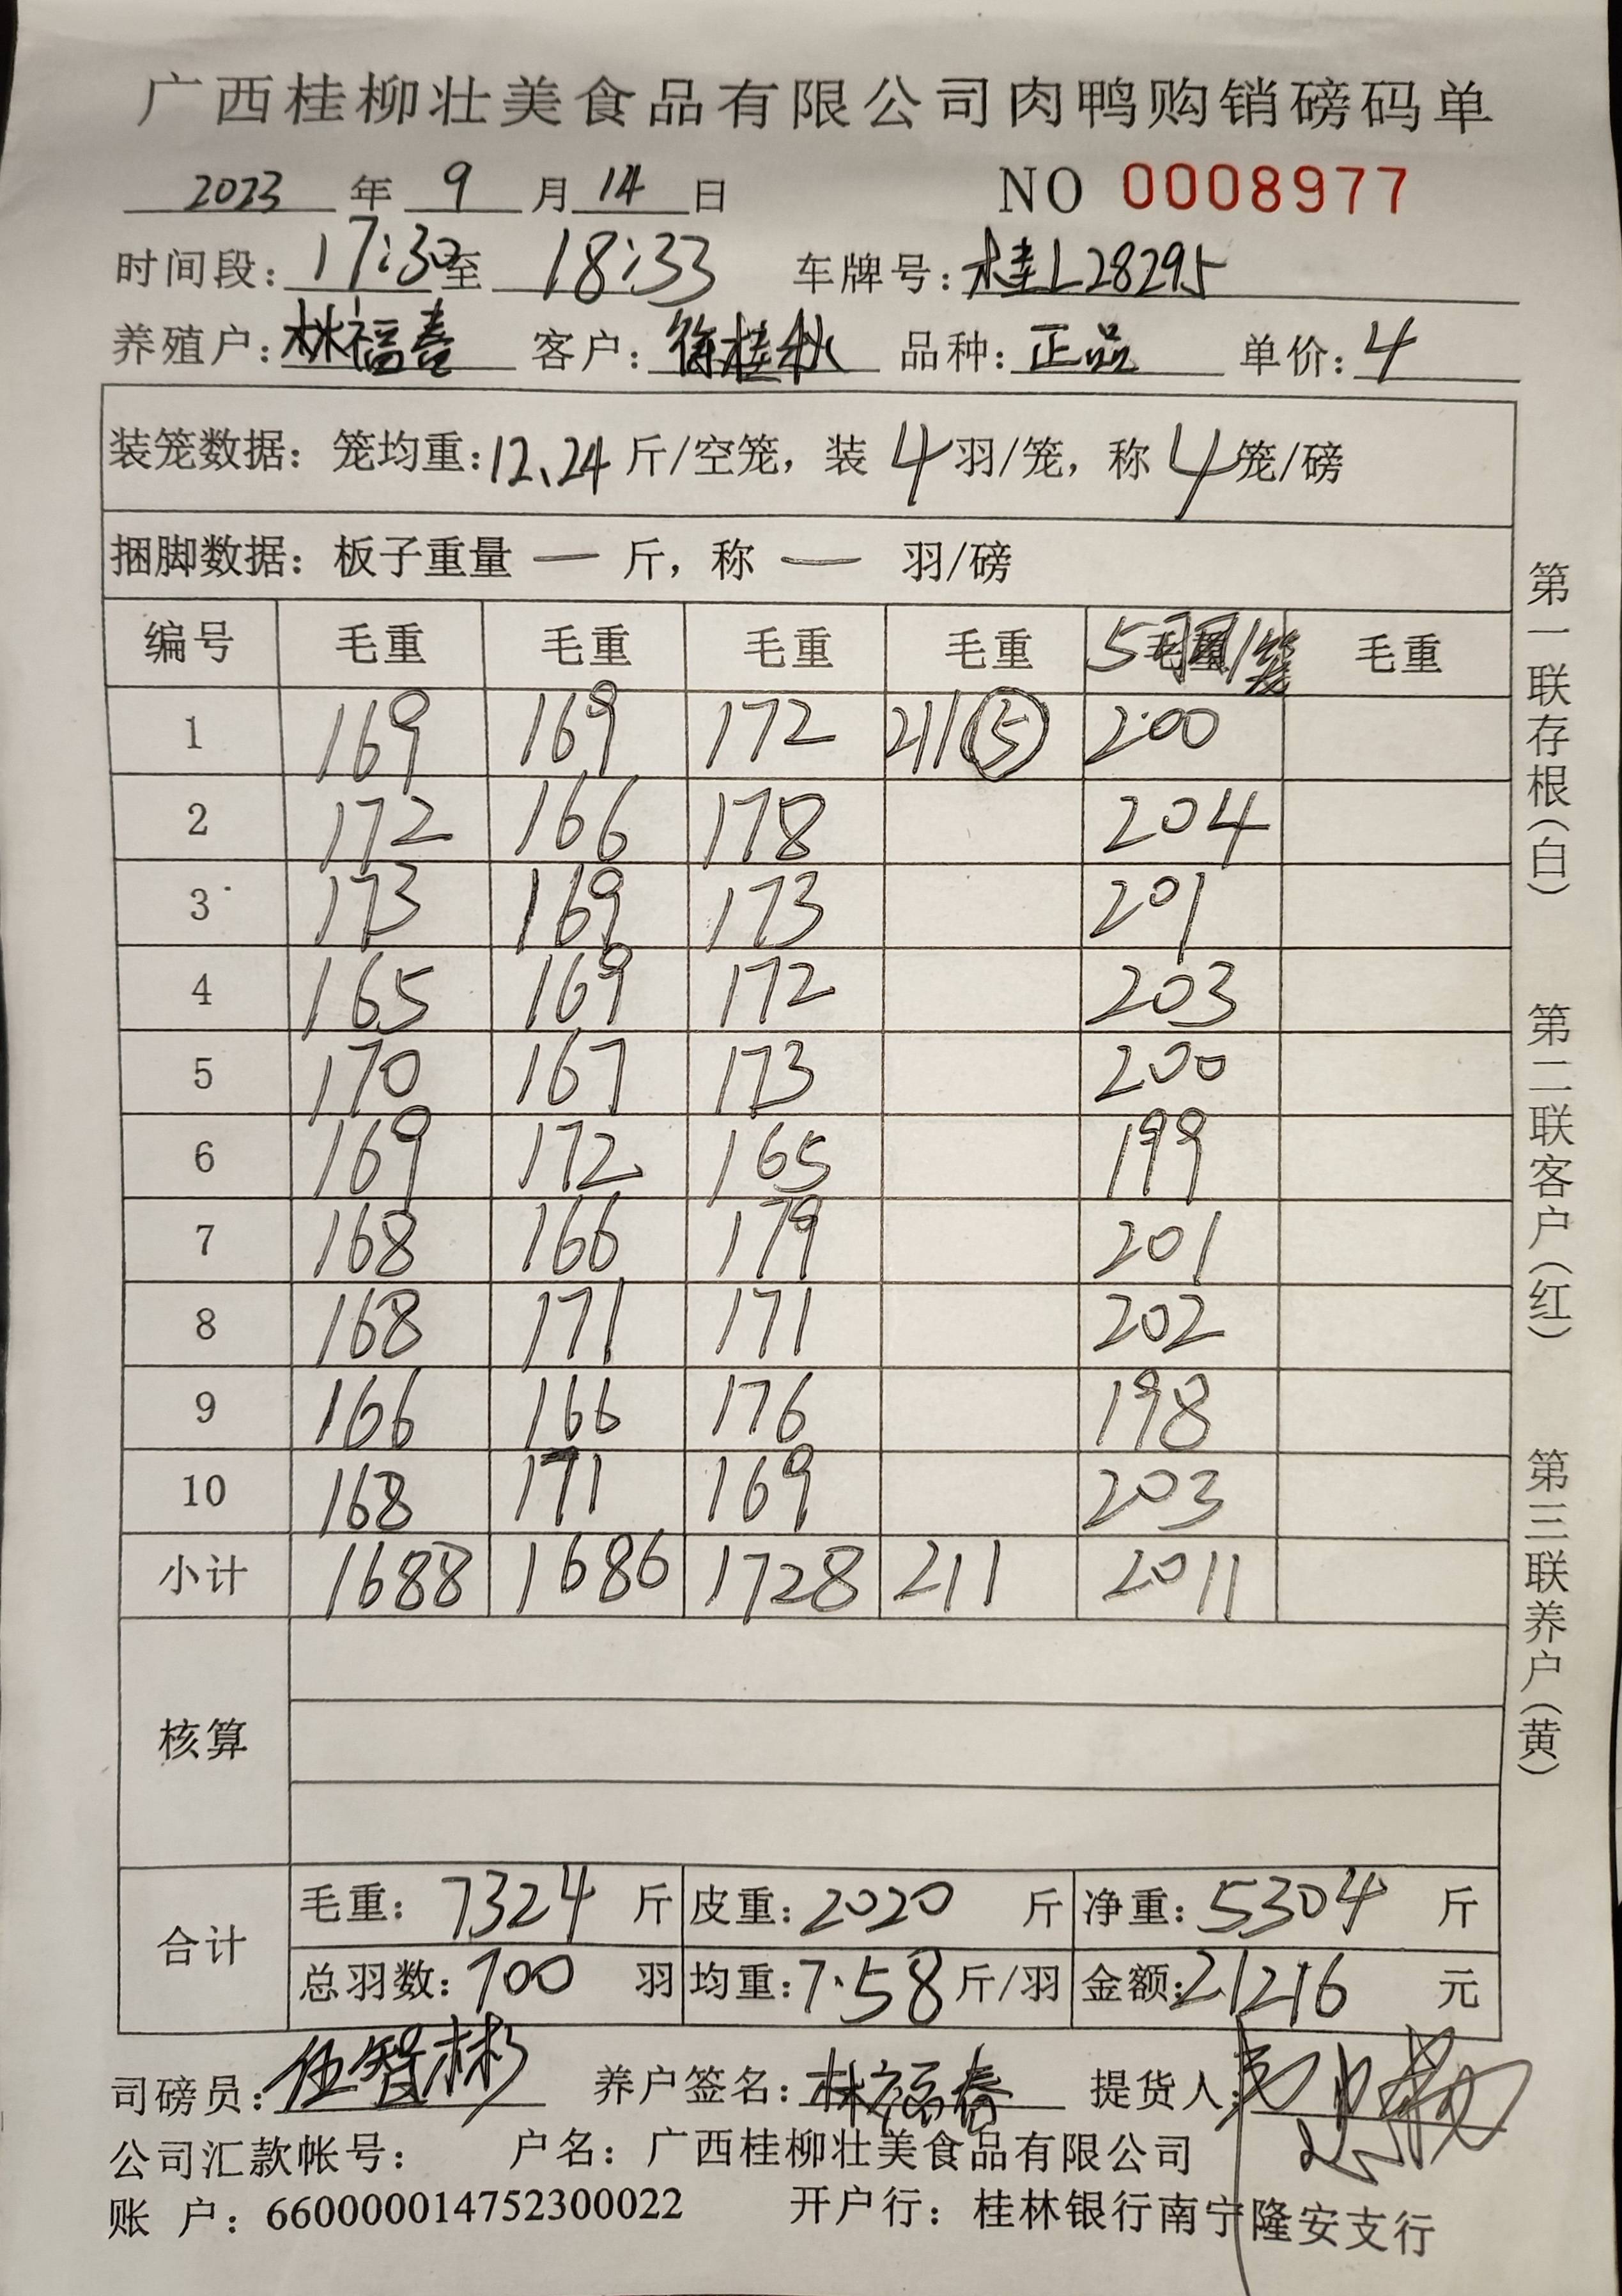 广西桂柳壮美食品有限公司肉鸭购销磅码单
2023 年 9 月 14 日 NO 0008977
时间段：17:30 至 18:33 车牌号：桂L28295
养殖户：林福春 客户：徐桂秋 品种：正品 单价：4
装笼数据：笼均重：12.24 斤/空笼，装 4 羽/笼，称 4 笼/磅
捆脚数据：板子重量 — 斤，称 — 羽/磅
编号 毛重 毛重 毛重 毛重 5羽/笼 毛重
1 169 169 172 211⑤ 200
2 172 166 178 204
3 173 169 173 201
4 165 169 172 203
5 170 167 173 200
6 169 172 165 199
7 168 166 179 201
8 168 171 171 202
9 166 166 176 198
10 168 171 169 203
小计 1688 1686 1728 211 2011
核算
合计 毛重：7324 斤 皮重：2020 斤 净重：5304 斤
总羽数：700 羽 均重：7.58 斤/羽 金额：21216 元
司磅员：伍智彬 养户签名：林福春 提货人：
公司汇款帐号： 户名：广西桂柳壮美食品有限公司
账 户：660000014752300022 开户行：桂林银行南宁隆安支行
第一联存根（白） 第二联客户（红） 第三联养户（黄）